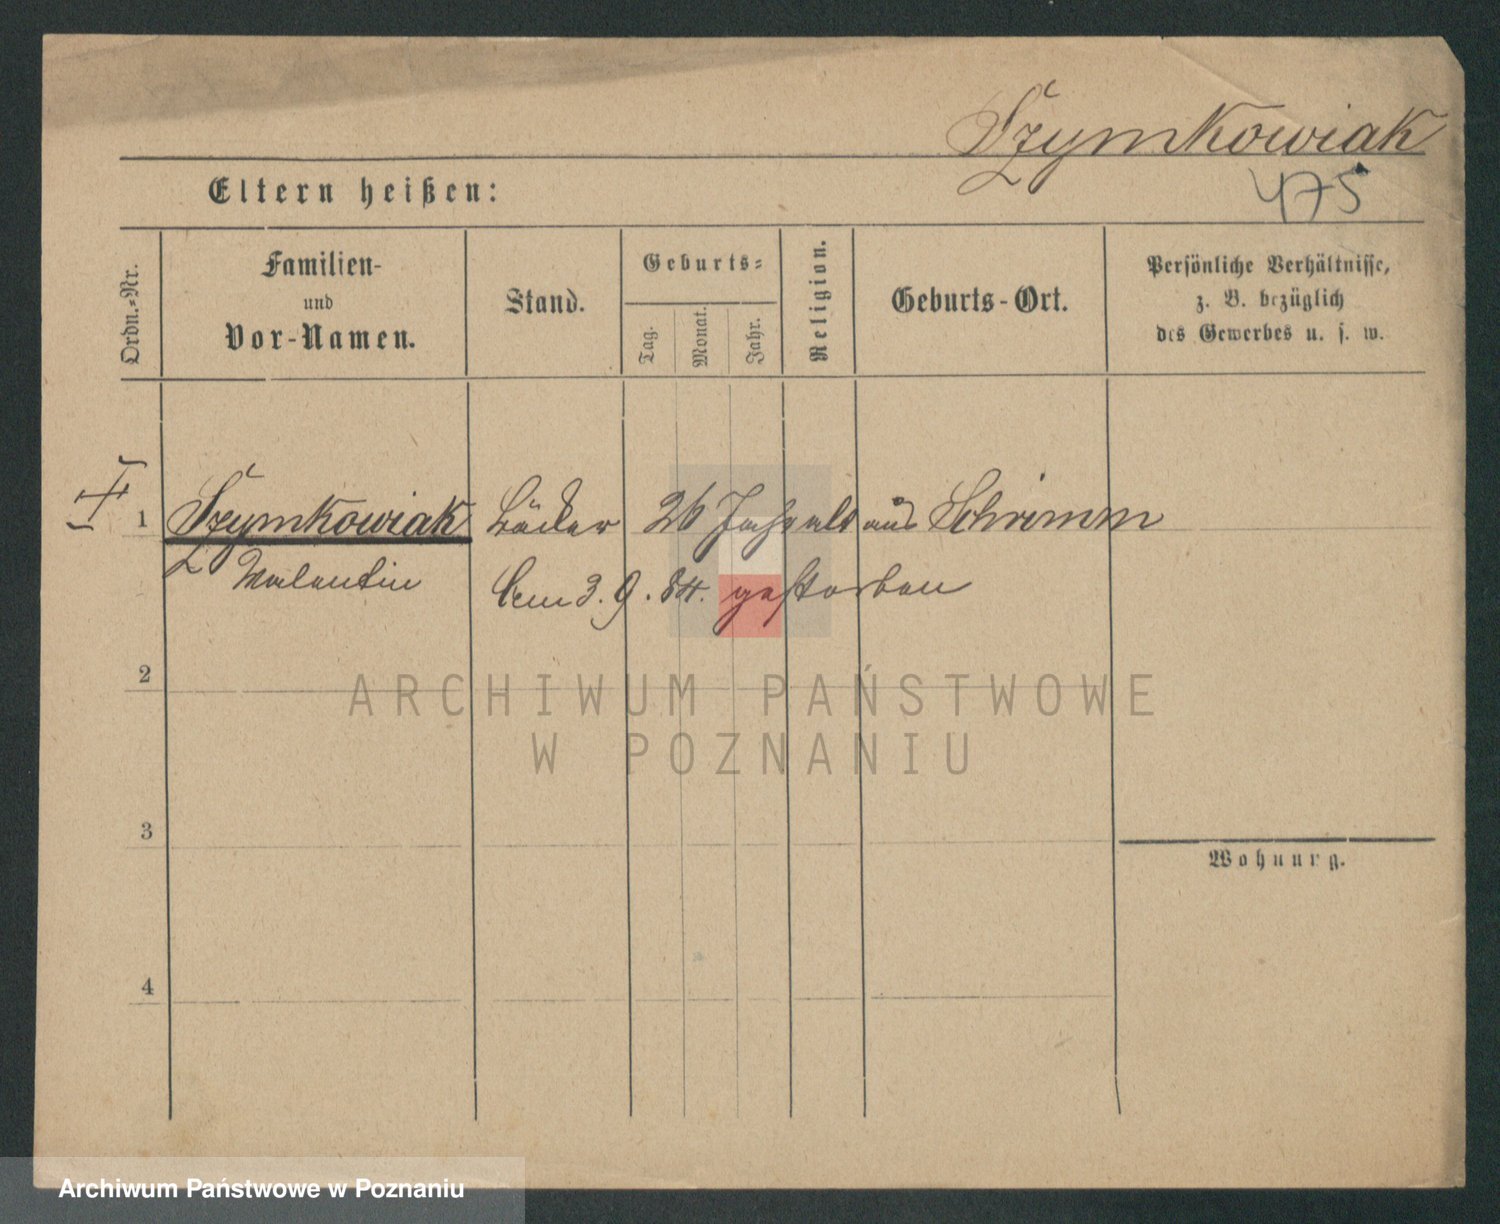 Szymkowiak
475
Eltern heißen:
Ordn.-Nr.
Familien-
und
Vor-Namen.
Stand.
Geburts-
Tag.
Monat.
Jahr.
Religion.
Geburts-Ort.
Persönliche Verhältnisse,
z. B. bezüglich
des Gewerbes u. s. w.
1 Szymkowiak Bäcker 26 Jahr alt aus Schrimm
Valentin am 3.9.84. gestorben
2
ARCHIWUM PAŃSTWOWE
W POZNANIU
3
Wohnung.
4
Archiwum Państwowe w Poznaniu